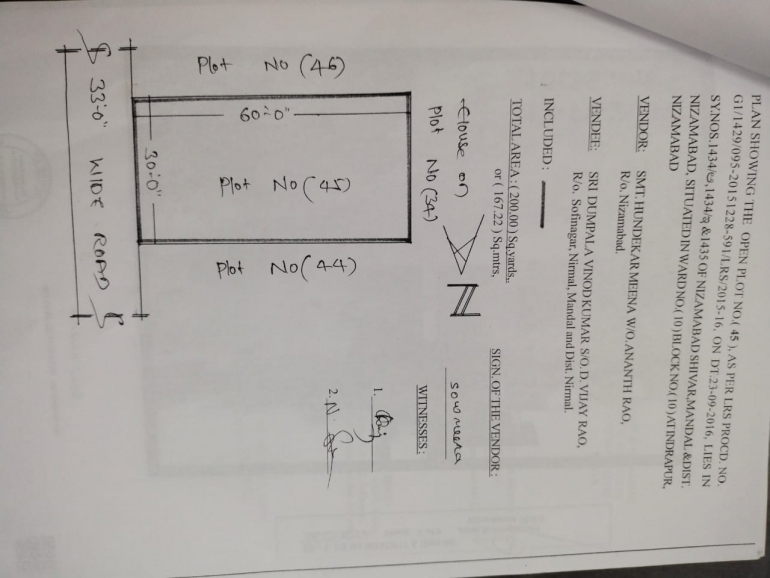 PLAN SHOWING THE OPEN PLOT NO.( 45 ), AS PER LRS PROCD. NO.
G1/1429/095-20151228-591/LRS/2015-16, ON DT.23-09-2016, LIES IN
SY.NOS.1434/ &1435 OF NIZAMABAD SHIVAR, MANDAL &DIST.
NIZAMABAD, SITUATED IN WARD NO.( 10 ) BLOCK NO.( 10 ) AT INDRAPUR,
NIZAMABAD
VENDOR: SMT. HUNDEKAR MEENA W/O. ANANTH RAO,
R/o. Nizamabad.
VENDEE: SRI DUMPALA VINOD KUMAR S/O. D. VIJAY RAO,
R/o. Sofinagar, Nirmal, Mandal and Dist. Nirmal.
INCLUDED :
TOTAL AREA : ( 200.00 ) Sq.yards,
or ( 167.22 ) Sq.mtrs,
SIGN. OF THE VENDOR :
House on
Plot No (34)
N
WITNESSES :
1.
2. N.
Plot No (46)
60'-0"
Plot No (45)
Plot No (44)
30'-0"
33'-0" WIDE ROAD